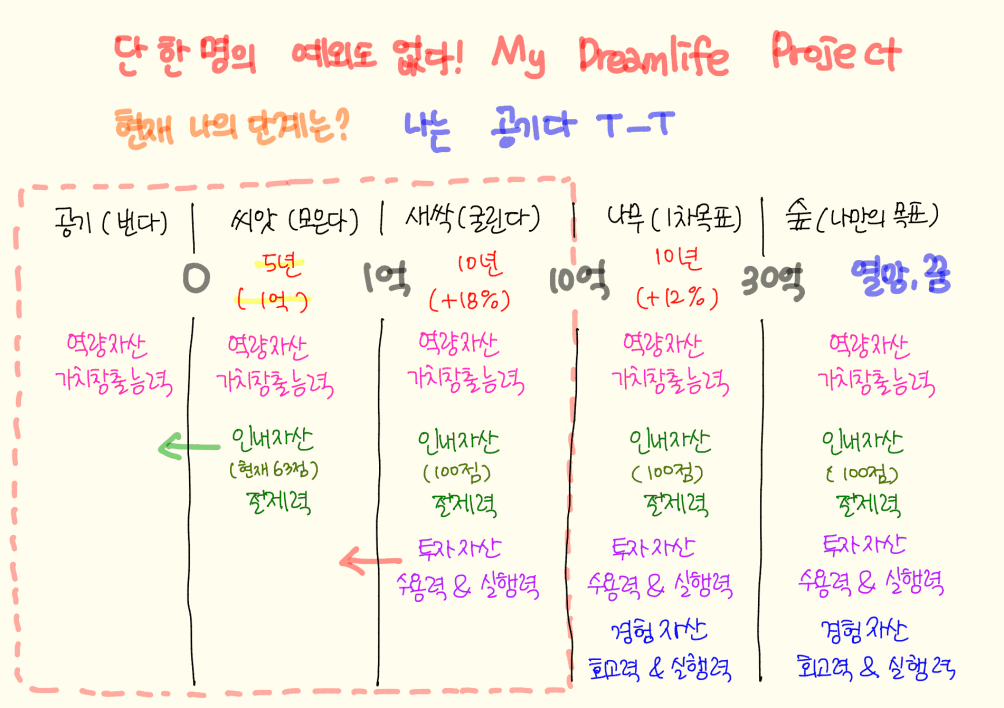 단 한 명의 예외도 없다! My Dreamlife Project
현재 나의 단계는? 나는 공기다 T_T
공기 (번다) 씨앗 (모은다) 새싹 (굴린다) 나무 (1차목표) 숲 (나만의 목표)
0 5년 1억 10년 10억 10년 30억 열망, 꿈
(1억) (+18%) (+12%)
역량자산 역량자산 역량자산 역량자산 역량자산
가치창출능력 가치창출능력 가치창출능력 가치창출능력 가치창출능력
인내자산 인내자산 인내자산 인내자산
(현재 63점) (100점) (100점) (100점)
절제력 절제력 절제력 절제력
투자자산 투자자산 투자자산
수용력 & 실행력 수용력 & 실행력 수용력 & 실행력
경험자산 경험자산
회고력 & 실행력 회고력 & 실행력